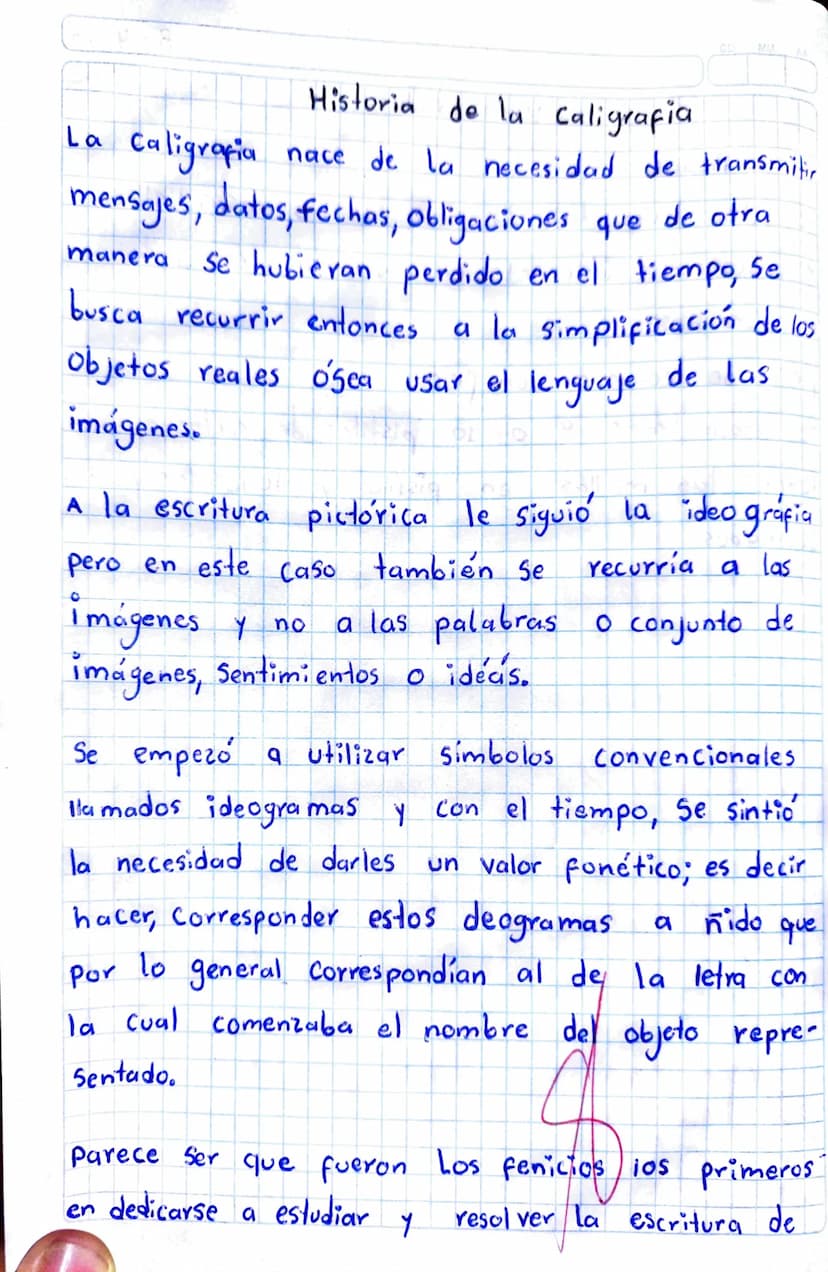 Historia de la Caligrafia
La Caligrafia nace de la necesidad de transmitir
mensajes, datos, fechas, obligaciones que de otra
manera se hubieran perdido en el tiempo, se
busca recurrir entonces a la simplificación de los
objetos reales ósea usar el lenguaje de las
imágenes.
A la escritura pictórica le siguió la ideográfia
pero en este caso también se recurría a las
imágenes y no a las palabras o conjunto de
imágenes, sentimientos o idéas.
Se empezó a utilizar símbolos convencionales
llamados ideogramas y con el tiempo, se sintió
la necesidad de darles un valor fonético; es decir
hacer, corresponder estos deogramas a ñido que
por lo general correspondían al de la letra con
la cual comenzaba el nombre del objeto repre-
sentado.
Parece ser que fueron los fenicios ios primeros
en dedicarse a estudiar y resolver la escritura de